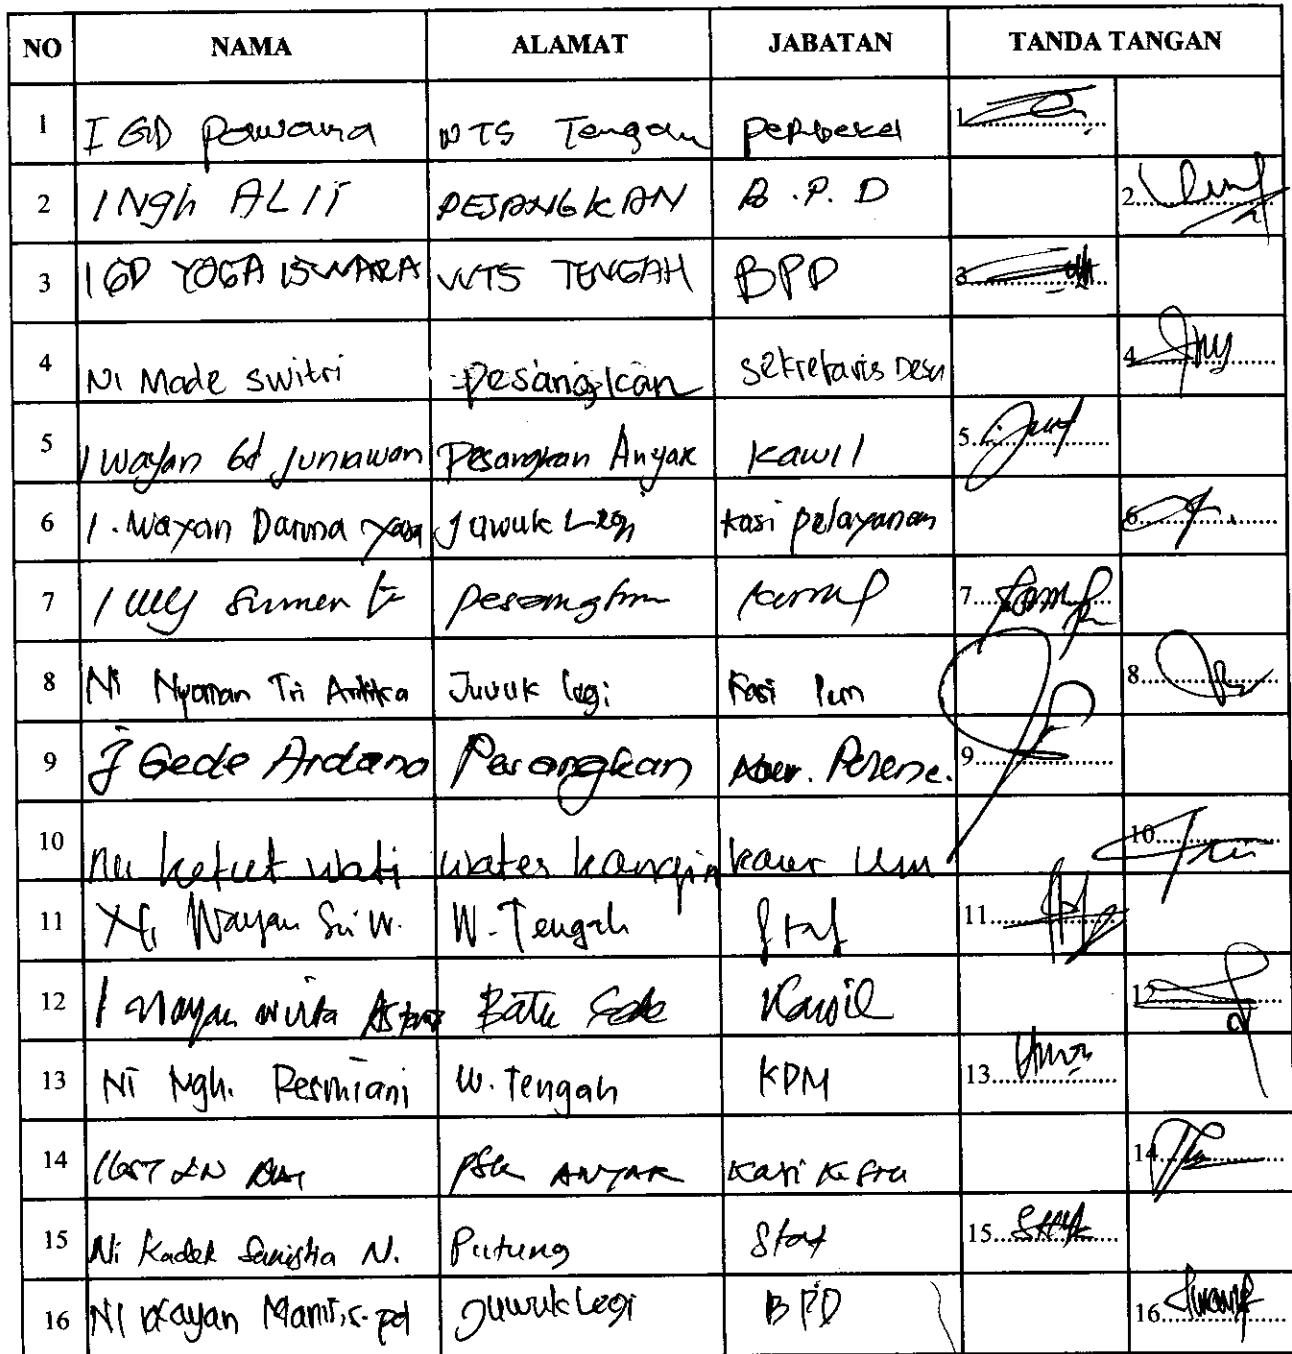 NO NAMA ALAMAT JABATAN TANDA TANGAN
1 I GD Pawana WTS Tengah Perbekel 1
2 I Ngh ALIT PESANGKAN B.P.D 2
3 I GD YOGA ISWARA WTS TENGAH BPD 3
4 Ni Made Switri Pesangkan Sekretaris Desa 4
5 I Wayan Gd Juniawan Pesangkan Anyar Kawil 5
6 I. Wayan Darma Yasa Juwuk Legi Kasi pelayanan 6
7 I Wy Pesangkan 7
8 Ni Nyoman Tri Juwuk legi Kasi 8
9 I Gede Ardana Pesangkan Kaur. Perenc. 9
10 Ni Ketut Wati Wates Kangin Kaur Um 10
11 Ni Wayan Sri W. W. Tengah Staf 11
12 I Wayan Wirta Batu Gede Kawil 12
13 Ni Ngh. Resmiani W. Tengah KPM 13
14 I GST PSK ANYAR Kasi Kesra 14
15 Ni Kadek N. Putung Staf 15
16 Ni Wayan Marni, S.pd Juwuk Legi BPD 16